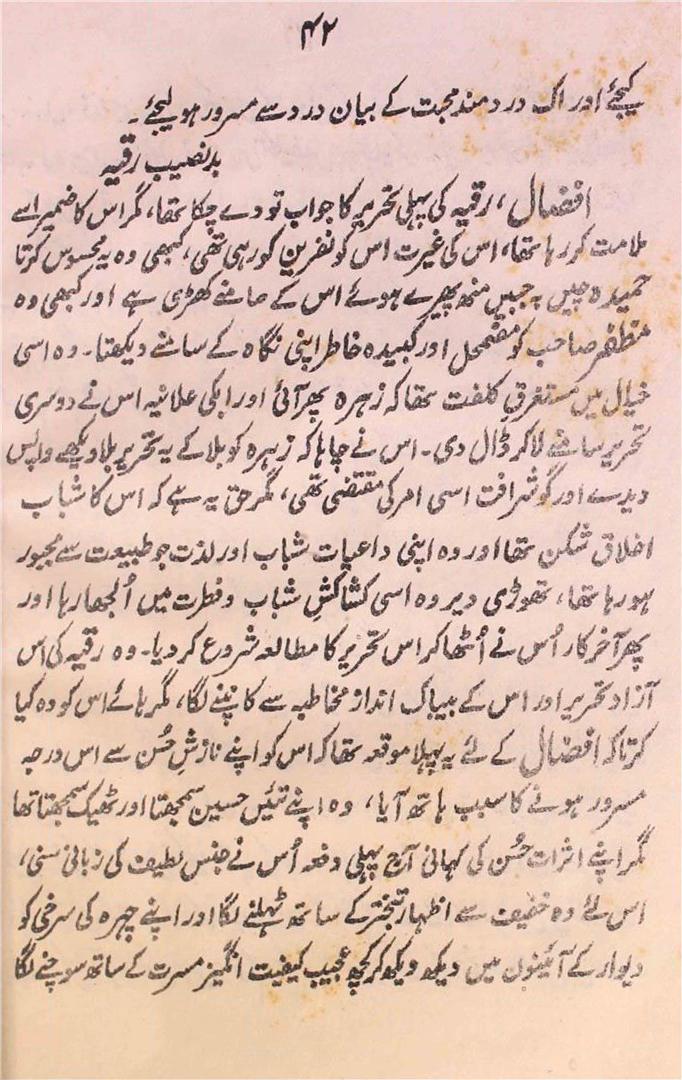 ۴۲
کیجئے اور اک دردمند محبت کے بیان درد سے مسرور ہو لیجئے۔
بدنصیب رقیہ
افضال، رقیہ کی پہلی تحریر کا جواب تو دے چکا تھا، مگر اس کا ضمیر اسے
ملامت کر رہا تھا، اس کی غیرت اس کو نفرین کو رہی تھی، کبھی وہ یہ محسوس کرتا
حمیدہ چیں بہ جبیں منھ پھیرے ہوئے اس کے سامنے کھڑی ہے اور کبھی وہ
منظفر صاحب کو مضمحل اور کبیدہ خاطر اپنی نگاہ کے سامنے دیکھتا۔ وہ اسی
خیال میں مستغرقِ کلفت تھا کہ زہرہ پھر آئی اور ابکی علانیہ اس نے دوسری
تحریر سامنے لاکر ڈال دی۔ اس نے چاہا کہ زہرہ کو بلا کے یہ تحریر بلا دیکھے واپس
دیدے اور گو شرافت اسی امر کی مقتضی تھی، مگر حق یہ ہے کہ اس کا شباب
اخلاق شکن تھا اور وہ اپنی داعیات شباب اور لذت جو طبیعت سے مجبور
ہو رہا تھا، تھوڑی دیر وہ اسی کشاکشِ شباب و فطرت میں اُلجھا رہا اور
پھر آخر کار اُس نے اُٹھا کر اس تحریر کا مطالعہ شروع کر دیا۔ وہ رقیہ کی اس
آزاد تحریر اور اس کے بیباک انداز مخاطبہ سے کانپنے لگا، مگر ہائے اس کو وہ کیا
کرتا کہ افضال کے لئے یہ پہلا موقعہ تھا کہ اس کو اپنے نازشِ حُسن سے اس درجہ
مسرور ہونے کا سبب ہاتھ آیا، وہ اپنے تئیں حسین سمجھتا اور ٹھیک سمجھتا تھا
مگر اپنے اثرات حُسن کی کہانی آج پہلی دفعہ اُس نے جنس لطیف کی زبانی سنی،
اس لئے وہ خفیف سے اظہار تبختر کے ساتھ ٹہلنے لگا اور اپنے چہرہ کی سرخی کو
دیوار کے آئینوں میں دیکھ دیکھ کر کچھ عجیب کیفیت انگیز مسرت کے ساتھ سوچنے لگا